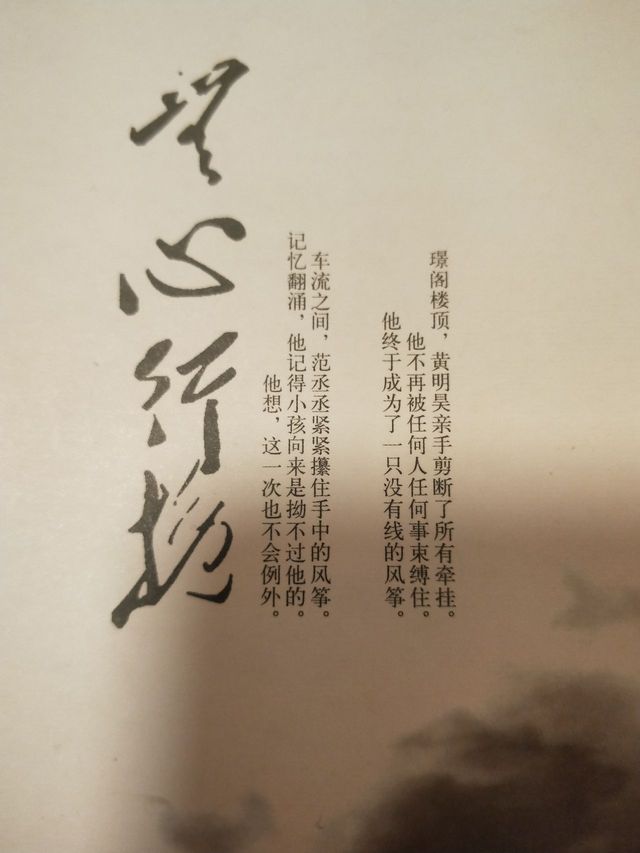 璟阁楼顶，黄明昊亲手剪断了所有牵挂。
他不再被任何人任何事束缚住。
他终于成为了一只没有线的风筝。
车流之间，范丞丞紧紧攥住手中的风筝。
记忆翻涌，他记得小孩向来是拗不过他的。
他想，这一次也不会例外。
心行